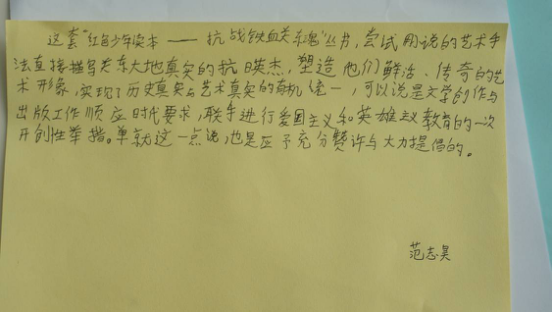 这套“红色少年读本——抗战铁血关东魂”丛书，尝试用说的艺术手
法直接描写关东大地真实的抗日英杰，塑造他们鲜活、传奇的艺
术形象，实现了历史真实与艺术真实的有机统一，可以说是文学创作与
出版工作顺应时代要求，联手进行爱国主义和英雄主义教育的一次
开创性举措。单就这一点说，也是应予充分赞许与大力提倡的。
范志昊